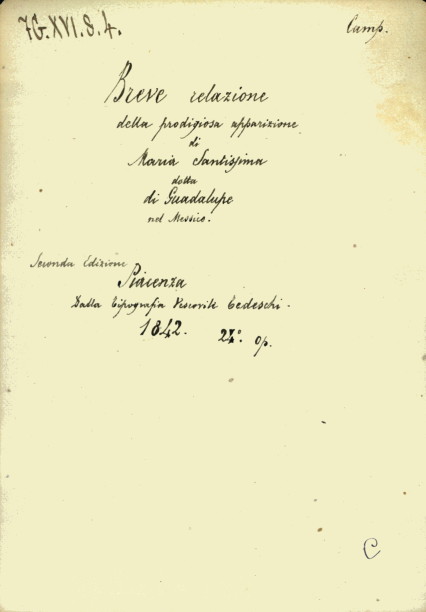 7G.XVI.8.4.
Camp.
Breve relazione
della prodigiosa apparizione
di
Maria Santissima
detta
di Guadalupe
nel Messico.
Seconda Edizione
Piacenza
Dalla Tipografia Vescovile Tedeschi.
1842. 24° op.
C